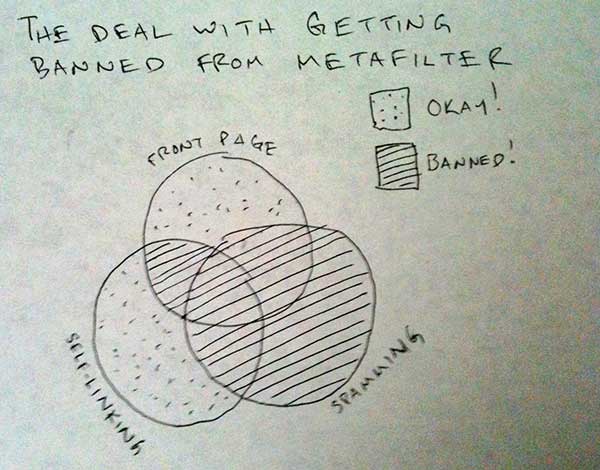 THE DEAL WITH GETTING
BANNED FROM METAFILTER
OKAY!
BANNED!
FRONT PAGE
SELF-LINKING
SPAMMING